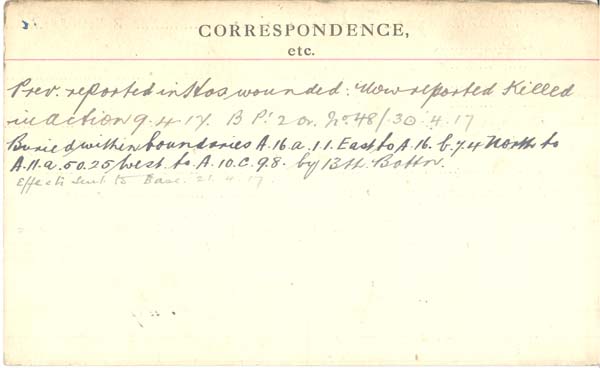 CORRESPONDENCE,
etc.
Prev. reported in Hos wounded. Now reported Killed
in action 9.4.17. B Pt 2 Or. No. 48/30.4.17
Buried within boundaries A.16.a.1.1. East to A.16.b.7.4 North to
A.11.a.50.25 West to A.10.C.9.8. by 13th. Battn.
Effects sent to Base. 21.4.17